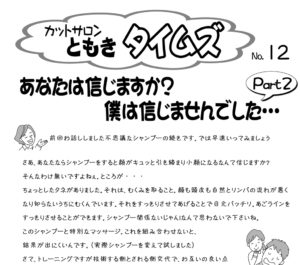 カットサロン
ともき タイムズ
No. 12
あなたは信じますか?
Part2
僕は信じませんでした…
前回お話ししました不思議なシャンプーの続きです。では早速いってみましょう
さあ、あなたならシャンプーをすると顔がキュッと引き締まり小顔になるなんて信じますか?
そんなわけ無いですよねぇ。ところが・・・
ちょっとしたタネがありました。それは、むくみを取ること。顔も頭皮も自然とリンパの流れが悪く
なり知らないうちにむくんでいます。それをすっきりさせてあげることで目元パッチリ、あごラインを
すっきりさせることができます。シャンプー関係ないじゃんなんて思わないで下さいね。
このシャンプーと特別なマッサージ、これを組み合わせないと、
結果が出にくいんです。(実際シャンプーを変えて試しました)
さて、トレーニングですが技術する側とされる側交代で、お互いの良い点